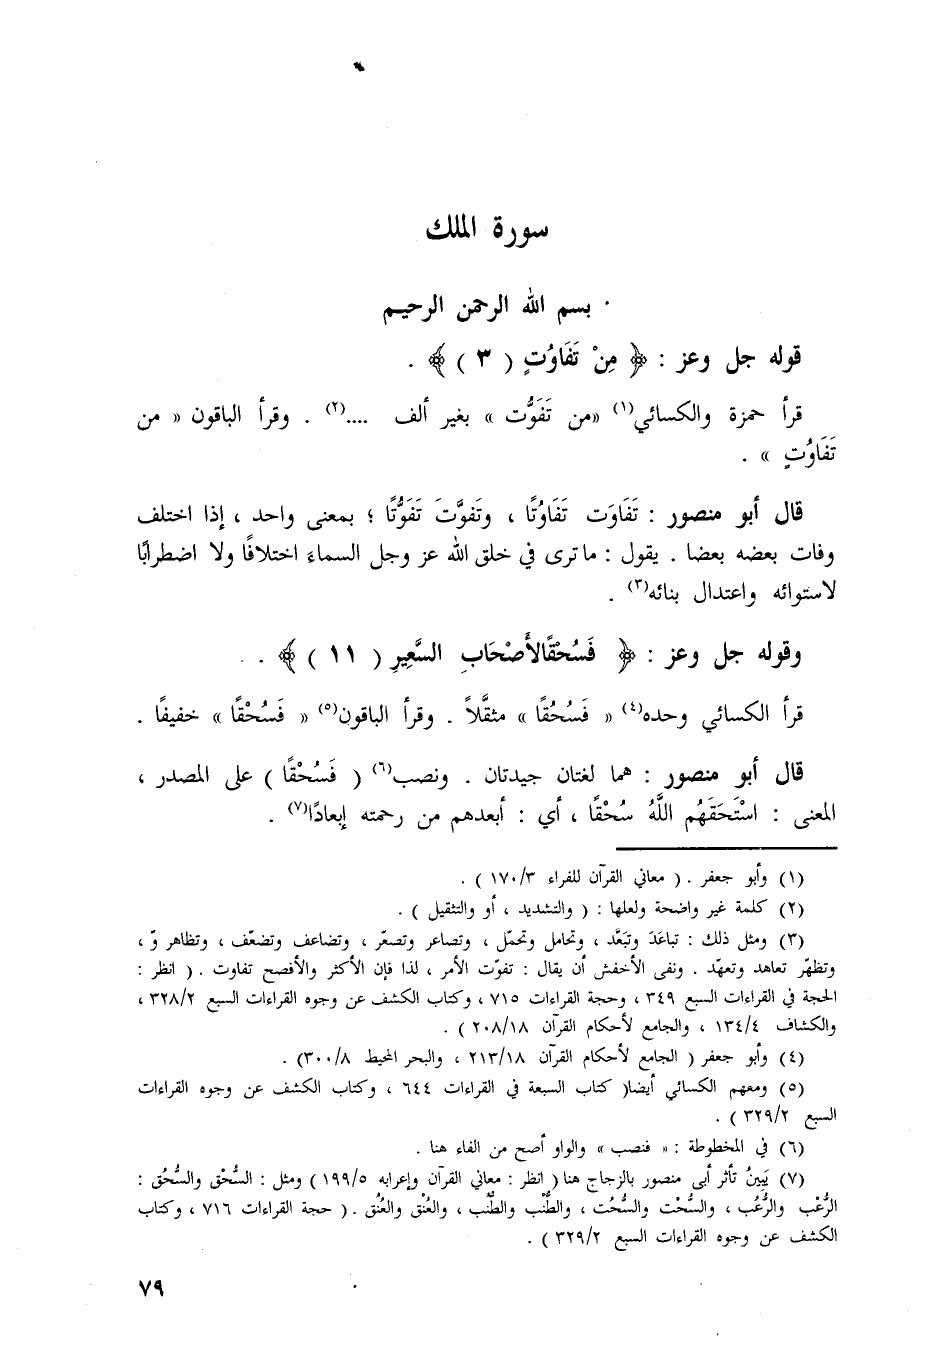 سورة الملك
بسم الله الرحمن الرحيم
قوله جل وعز : ﴿ مِنْ تَفَاوُتٍ ( ٣ ) ﴾ .
قرأ حمزة والكسائي(١) «من تَفَوُّت » بغير ألف ....(٢) . وقرأ الباقون « من
تَفَاوُتٍ » .
قال أبو منصور : تَفَاوَت تَفَاوُتًا ، وتَفوَّتَ تَفَوُّتًا ؛ بمعنى واحد ، إذا اختلف
وفات بعضه بعضا . يقول : ما ترى في خلق الله عز وجل السماءَ اختلافًا ولا اضطرابًا
لاستوائه واعتدال بنائه(٣) .
وقوله جل وعز : ﴿ فَسُحْقًالأَصْحَابِ السَّعِيرِ ( ١١ ) ﴾ .
قرأ الكسائي وحده(٤) « فَسُحُقًا » مثقَّلاً . وقرأ الباقون(٥) « فَسُحْقًا » خفيفًا .
قال أبو منصور : هما لغتان جيدتان . ونصب(٦) ( فَسُحْقًا ) على المصدر ،
المعنى : اسْتَحَقَهُم اللَّهُ سُحْقًا ، أي : أبعدهم من رحمته إبعادًا(٧) .
(١) وأبو جعفر . ( معاني القرآن للفراء ١٧٠/٣ ) .
(٢) كلمة غير واضحة ولعلها : ( والتشديد ، أو والتثقيل ) .
(٣) ومثل ذلك : تباعَدَ وتَبَعَّد ، وتحامل وتحمّل ، وتصاعر وتصعّر ، وتضاعف وتضعّف ، وتظاهر وَ ،
وتظهّر تعاهد وتعهّد . ونفى الأخفش أن يقال : تفوّت الأمر ، لذا فإن الأكثر والأفصح تفاوت . ( انظر :
الحجة في القراءات السبع ٣٤٩ ، وحجة القراءات ٧١٥ ، وكتاب الكشف عن وجوه القراءات السبع ٣٢٨/٢ ،
والكشاف ١٣٤/٤ ، والجامع لأحكام القرآن ٢٠٨/١٨ ) .
(٤) وأبو جعفر ( الجامع لأحكام القرآن ٢١٣/١٨ ، والبحر المحيط ٣٠٠/٨) .
(٥) ومعهم الكسائي أيضا( كتاب السبعة في القراءات ٦٤٤ ، وكتاب الكشف عن وجوه القراءات
السبع ٣٢٩/٢ ) .
(٦) في المخطوطة : « فنصب » والواو أصح من الفاء هنا .
(٧) يَبِينُ تأثر أبى منصور بالزجاج هنا ( انظر : معاني القرآن وإعرابه ١٩٩/٥ ) ومثل : السُّحْق والسُّحُق :
الرُّعْب والرُّعُب ، والسُّحْت والسُّحُت ، والطُّنْب والطُّنُب ، والعُنْق والعُنُق . ( حجة القراءات ٧١٦ ، وكتاب
الكشف عن وجوه القراءات السبع ٣٢٩/٢ ) .
٧٩